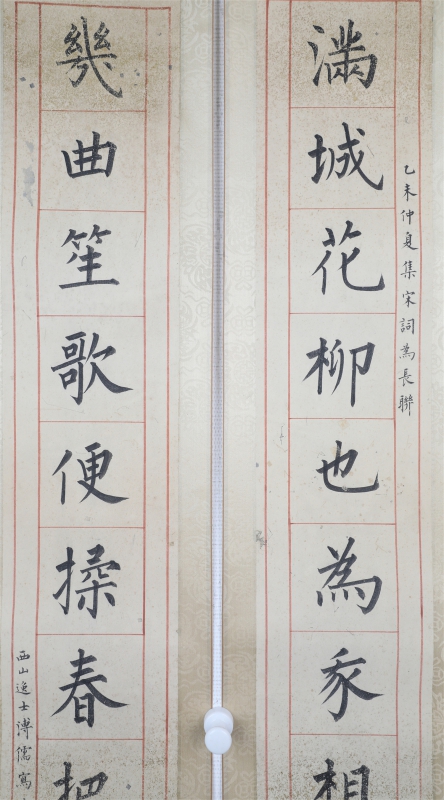 滿城花柳也為相
乙未仲夏集宋詞為長聯
幾曲笙歌便操春把
西山逸士溥儒寫